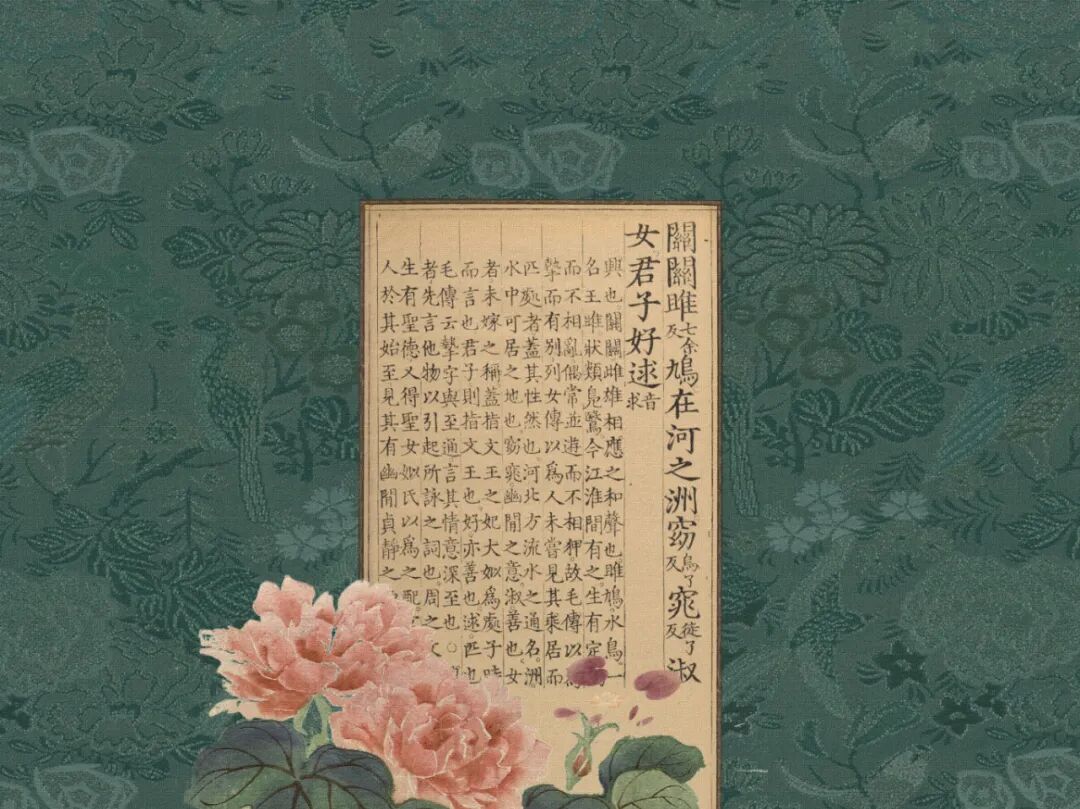 關關雎七余反鳩在河之洲窈烏了反窕徒了反淑
女君子好逑音求
興也關關雌雄相應之和聲也雎鳩水鳥一
名王雎狀類鳧鷖今江淮間有之生有定
而不相亂偶常並遊而不相狎故毛傳以爲
摯而有別列女傳以爲人未嘗見其乘居而
匹處者蓋其性然也河北方流水之通名洲
水中可居之地也窈窕幽閒之意淑善也女
者未嫁之稱蓋指文王之妃大姒爲處子時
而言也君子則指文王也好亦善也逑匹也
毛傳云摯字與至通言其情意深至也○
者先言他物以引起所詠之詞也周之
生有聖德又得聖女姒氏以爲之配
人於其始至見其有幽閒貞靜之